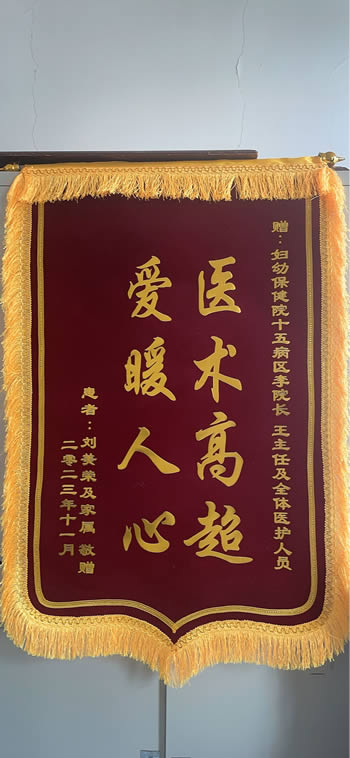 赠：妇幼保健院十五病区李院长 王主任及全体医护人员
医术高超
爱暖人心
患者：刘美荣及家属 敬赠
二零二三年十一月